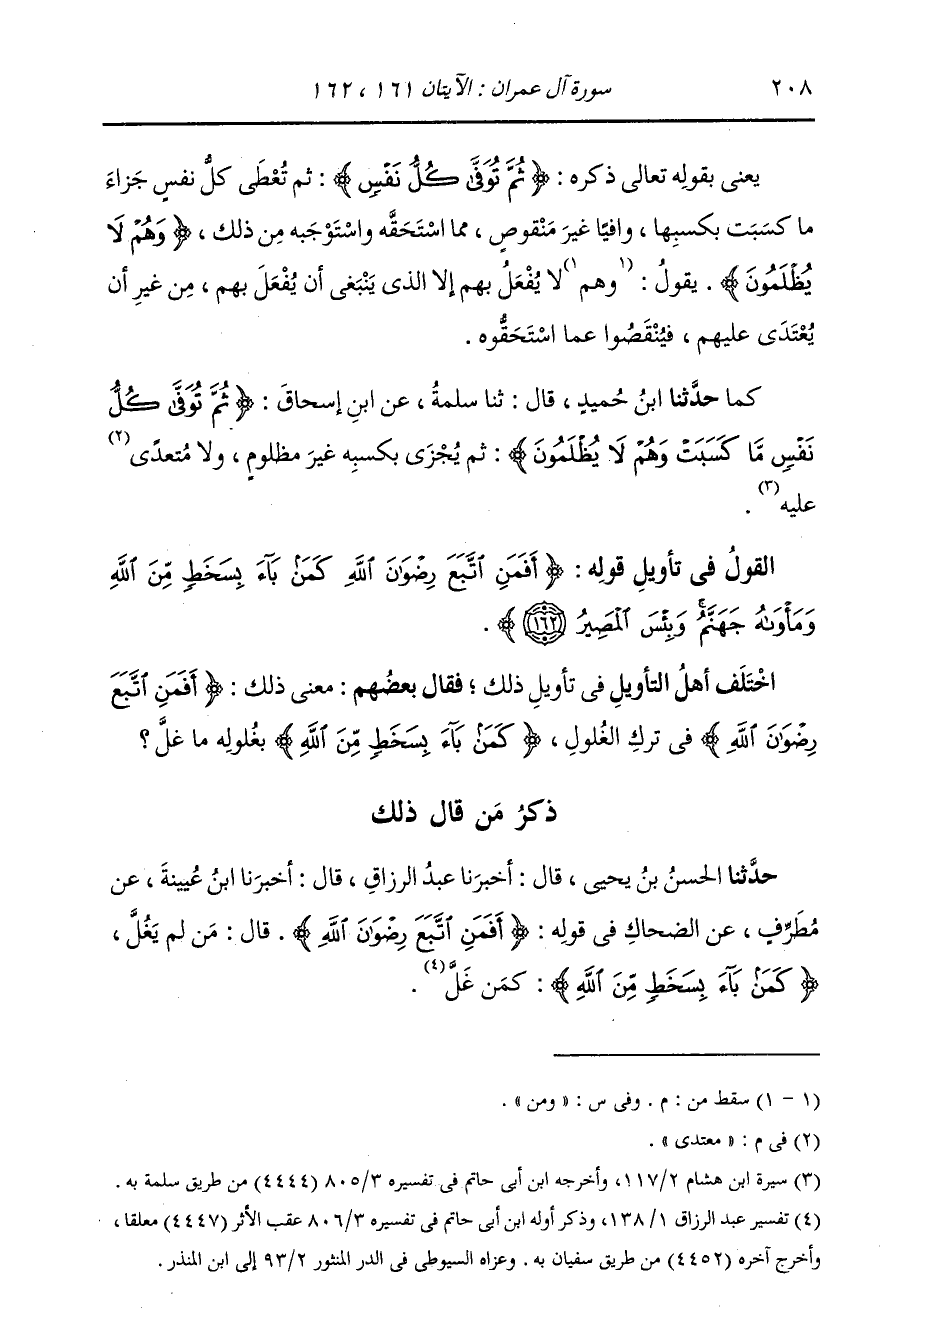 ٢٠٨ سورة آل عمران : الآيتان ١٦١ ، ١٦٢
يعنى بقولِه تعالى ذكره : ﴿ ثُمَّ تُوَفَّىٰ كُلُّ نَفْسٍ ﴾ : ثم تُعْطَى كلُّ نفسٍ جَزاءَ
ما كسَبَت بكسبِها ، وافيًا غيرَ مَنْقوصٍ ، مما اسْتَحَقَّه واسْتَوْجَبه مِن ذلك ، ﴿ وَهُمْ لَا
يُظْلَمُونَ ﴾ . يقولُ : (١وهم١) لا يُفْعَلُ بهم إلا الذى يَنْبغى أن يُفْعَلَ بهم ، مِن غيرِ أن
يُعْتَدَى عليهم ، فيُنْقَصُوا عما اسْتَحَقُّوه .
كما حدَّثنا ابنُ حُميدٍ ، قال : ثنا سلمةُ ، عن ابنِ إسحاقَ : ﴿ ثُمَّ تُوَفَّىٰ كُلُّ
نَفْسٍ مَّا كَسَبَتْ وَهُمْ لَا يُظْلَمُونَ ﴾ : ثم يُجْزَى بكسبِه غيرَ مظلومٍ ، ولا مُتعدًى(٢)
عليه(٣) .
القولُ فى تأويلِ قوله : ﴿ أَفَمَنِ ٱتَّبَعَ رِضْوَٰنَ ٱللَّهِ كَمَنۢ بَآءَ بِسَخَطٍ مِّنَ ٱللَّهِ
وَمَأْوَىٰهُ جَهَنَّمُ ۚ وَبِئْسَ ٱلْمَصِيرُ ۝١٦٢ ﴾ .
اخْتَلَف أهلُ التأويلِ فى تأويلِ ذلك ؛ فقال بعضُهم : معنى ذلك : ﴿ أَفَمَنِ ٱتَّبَعَ
رِضْوَٰنَ ٱللَّهِ ﴾ فى تركِ الغُلولِ ، ﴿ كَمَنۢ بَآءَ بِسَخَطٍ مِّنَ ٱللَّهِ ﴾ بغُلولِه ما غلَّ ؟
ذكرُ مَن قال ذلك
حدَّثنا الحسنُ بنُ يحيى ، قال : أخبرَنا عبدُ الرزاقِ ، قال : أخبرَنا ابنُ عُيينةَ ، عن
مُطَرِّفٍ ، عن الضحاكِ فى قولِه : ﴿ أَفَمَنِ ٱتَّبَعَ رِضْوَٰنَ ٱللَّهِ ﴾ . قال : مَن لم يَغُلَّ ،
﴿ كَمَنۢ بَآءَ بِسَخَطٍ مِّنَ ٱللَّهِ ﴾ : كمَن غَلَّ(٤) .
(١ - ١) سقط من : م . وفى س : « ومن » .
(٢) فى م : « معتدى » .
(٣) سيرة ابن هشام ١١٧/٢، وأخرجه ابن أبى حاتم فى تفسيره ٨٠٥/٣ (٤٤٤٤) من طريق سلمة به .
(٤) تفسير عبد الرزاق ١/ ١٣٨، وذكر أوله ابن أبى حاتم فى تفسيره ٨٠٦/٣ عقب الأثر (٤٤٤٧) معلقا ،
وأخرج آخره (٤٤٥٢) من طريق سفيان به . وعزاه السيوطى فى الدر المنثور ٩٣/٢ إلى ابن المنذر .